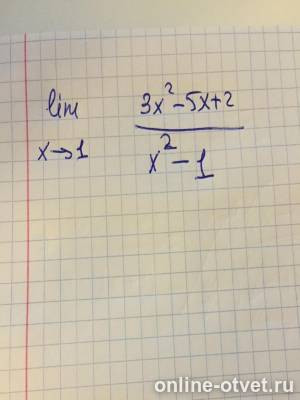 lim 3x²-5x+2
x→1 x²-1
online-otvet.ru